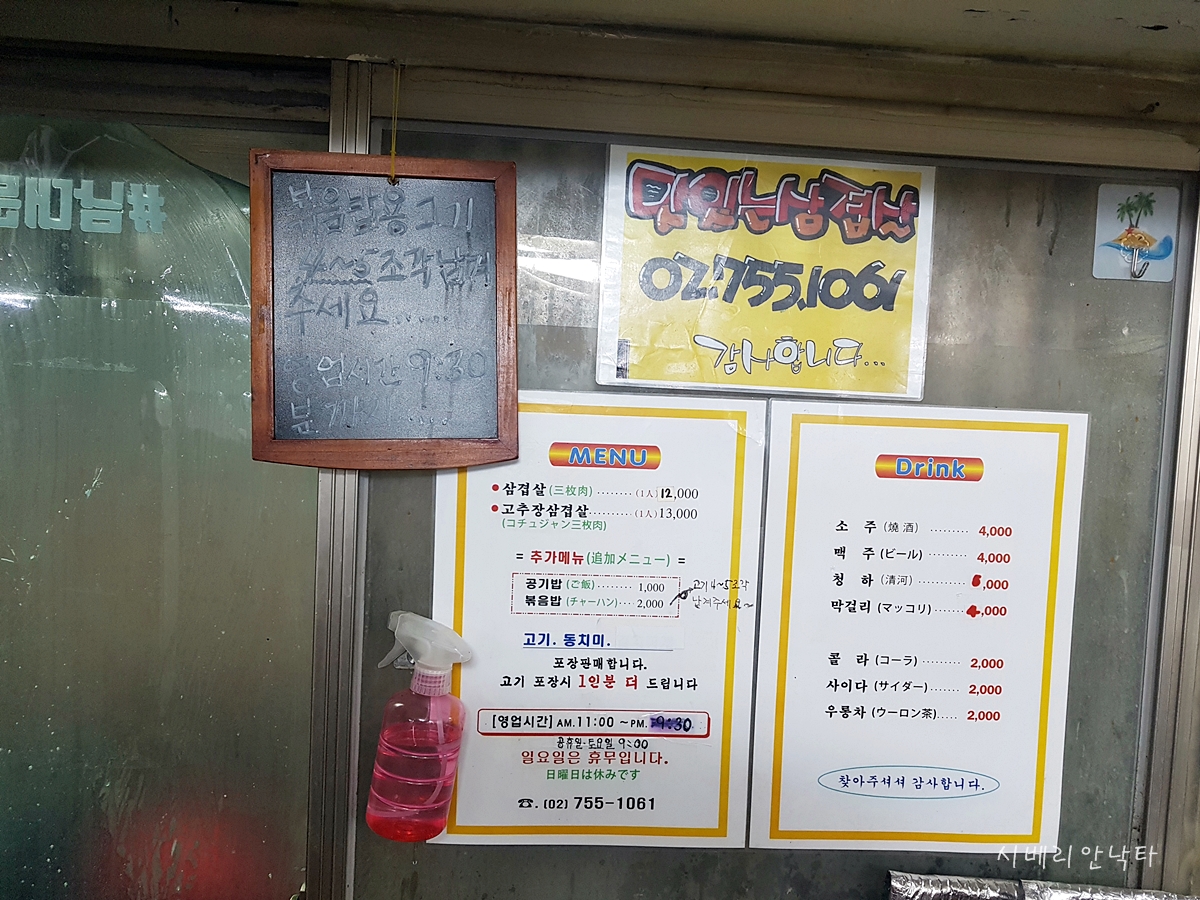 #남대문
볶음밥용고기
4~5조각남겨
주세요.....
영업시간 9:30
분까지....
맛있는삼겹살
02.755.1061
감사합니다...
MENU
● 삼겹살 (三枚肉) ........ (1人) 12,000
● 고추장삼겹살.......... (1人) 13,000
(コチュジャン三枚肉)
= 추가메뉴 (追加メニュー) =
공기밥 (ご飯) ........ 1,000
볶음밥 (チャーハン).... 2,000
고기4~5조각
남겨주세요~
고기. 동치미.
포장판매합니다.
고기 포장시 1인분 더 드립니다
[영업시간] AM. 11:00 ~PM. 9:30
공휴일·토요일 9:00
일요일은 휴무입니다.
日曜日は休みです
☎. (02) 755-1061
Drink
소 주 (燒酒) ......... 4,000
맥 주 (ビール) ......... 4,000
청 하 (清河) ........... 5,000
막걸리 (マッコリ) ....... 4,000
콜 라 (コーラ) ......... 2,000
사이다 (サイダー)....... 2,000
우롱차 (ウーロン茶)..... 2,000
찾아주셔셔 감사합니다.
시베리안낙타